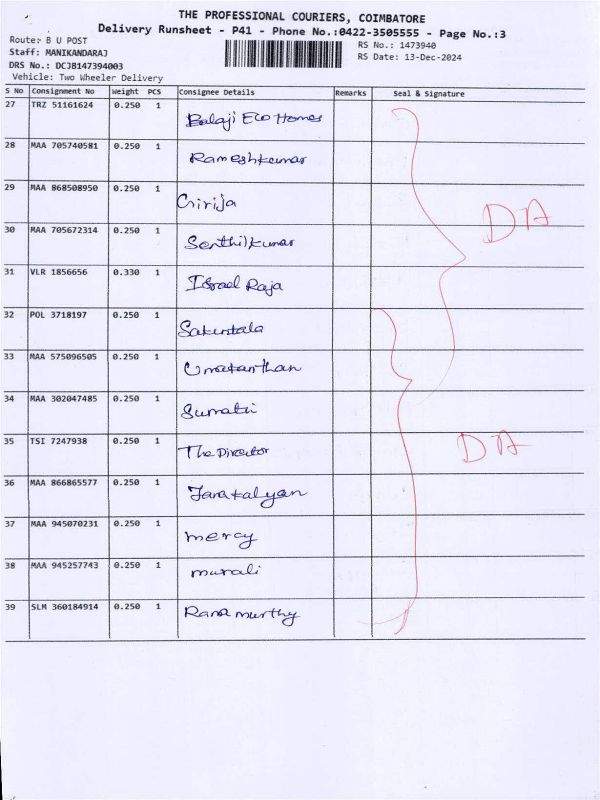 THE PROFESSIONAL COURIERS, COIMBATORE
Delivery Runsheet - P41 - Phone No.:0422-3505555 - Page No.:3
Route:- B U POST
RS No.: 1473940
Staff: MANIKANDARAJ
RS Date: 13-Dec-2024
DRS No.: DCJB147394003
Vehicle: Two Wheeler Delivery
S No Consignment No Weight PCS Consignee Details Remarks Seal & Signature
27 TRZ 51161624 0.250 1 Balaji Eco Homes
28 MAA 705740581 0.250 1 Rameshkumar
29 MAA 868508950 0.250 1 Girija
30 MAA 705672314 0.250 1 Senthilkumar
DA
31 VLR 1856656 0.330 1 Israel Raja
32 POL 3718197 0.250 1 Sakuntala
33 MAA 575096505 0.250 1 Umakanthan
34 MAA 302047485 0.250 1 Sumati
35 TSI 7247938 0.250 1 The Director
DA
36 MAA 866865577 0.250 1 Tarakalyan
37 MAA 945070231 0.250 1 mercy
38 MAA 945257743 0.250 1 murali
39 SLM 360184914 0.250 1 Rama murthy